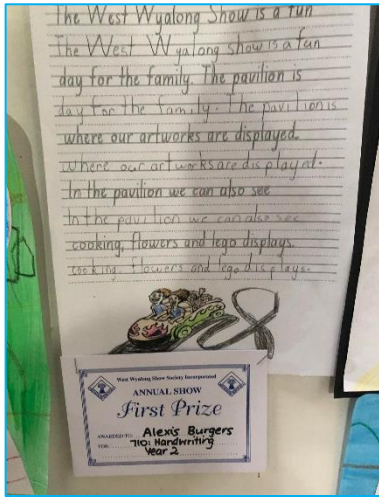 The West Wyalong Show is a fun
The West Wyalong Show is a fun
day for the family. The pavilion is
day for the family. The pavilion is
where our artworks are displayed.
where our artworks are displayed.
In the pavilion we can also see
In the pavilion we can also see
cooking, flowers and lego displays.
cooking, flowers and lego displays.
West Wyalong Show Society Incorporated
ANNUAL SHOW
First Prize
AWARDED TO Alexis Burgers
FOR 710: Handwriting
Year 2